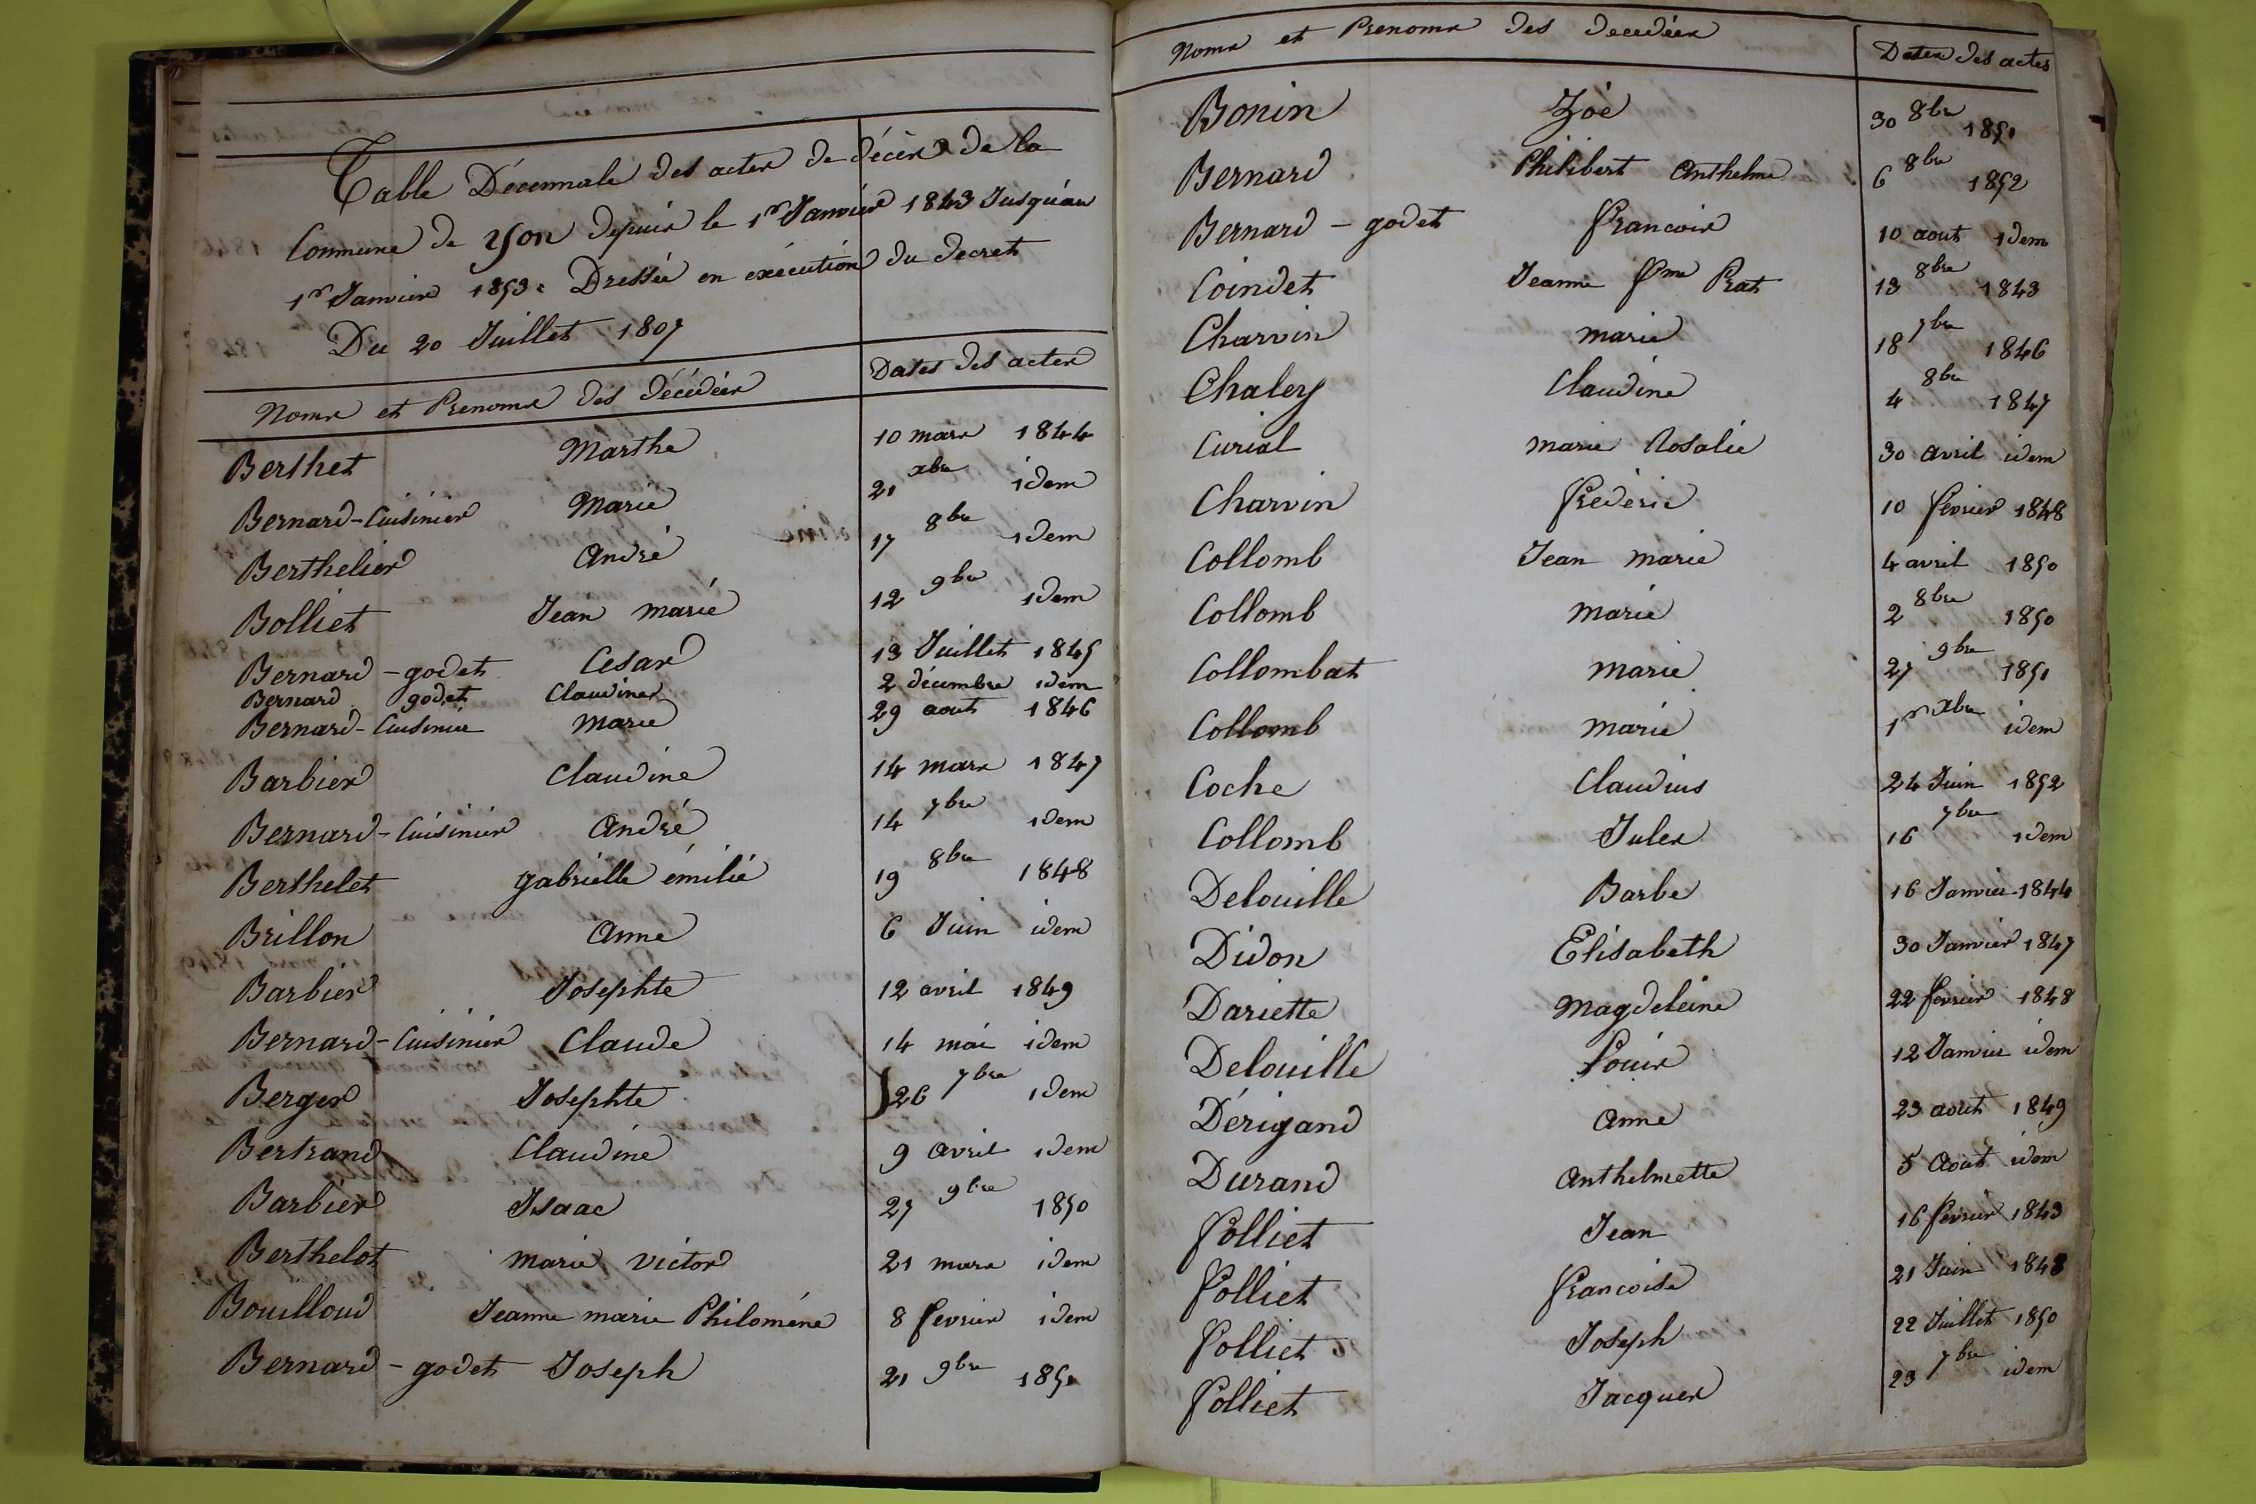 Table Décennale des actes de décès de la
Commune de yon depuis le 1er Janvier 1843 Jusqu'au
1er Janvier 1853. Dressée en exécution du decret
Du 20 Juillet 1807
Noms et Prenoms des décédés Dates des actes
Berthet Marthe 10 mars 1844
Bernard-Cuisinier Marie 21 xbre idem
Berthelier André 17 8bre idem
Bolliet Jean marie 12 9bre idem
Bernard-godet Cesar 13 Juillet 1845
Bernard godet Claudine 2 décembre idem
Bernard-Cuisinier Marie 29 aout 1846
Barbier Claudine 14 mars 1847
Bernard-Cuisinier André 14 7bre idem
Berthelet gabrielle émilie 19 8bre 1848
Brillon Anne 6 Juin idem
Barbier Josephte 12 avril 1849
Bernard-Cuisinier Claude 14 mai idem
Berger Josephte 26 7bre idem
Bertrand Claudine 9 avril idem
Barbier Isaac 27 9bre 1850
Berthelot marie victor 21 mars idem
Bouilloud Jeanne marie Philoméne 8 fevrier idem
Bernard-godet Joseph 21 9bre 1851
Noms et Prenoms des decedées Dates des actes
Bonin Zoé 30 8bre 1851
Bernard Philibert Anthelme 6 8bre 1852
Bernard-godet francois 10 aout idem
Coindet Jeanne fme Prat 13 8bre 1843
Charvin marie 18 7bre 1846
Chaley Claudine 4 8bre 1847
Curial marie Rosalie 30 avril idem
Charvin frederic 10 fevrier 1848
Collomb Jean marie 4 avril 1850
Collomb marie 2 8bre 1850
Collombat marie 27 9bre 1851
Collomb marie 1er xbre idem
Coche Claudius 24 Juin 1852
Collomb Jules 16 7bre idem
Delouille Barbe 16 Janvier 1844
Didon Elisabeth 30 Janvier 1847
Dariette Magdeleine 22 fevrier 1848
Delouille Louis 12 Janvier idem
Dérigand Anne 23 aout 1849
Durand Anthelmette 5 Aout idem
folliet Jean 16 fevrier 1843
folliet francoise 21 Juin 1848
folliet Joseph 22 Juillet 1850
folliet Jacques 23 7bre idem